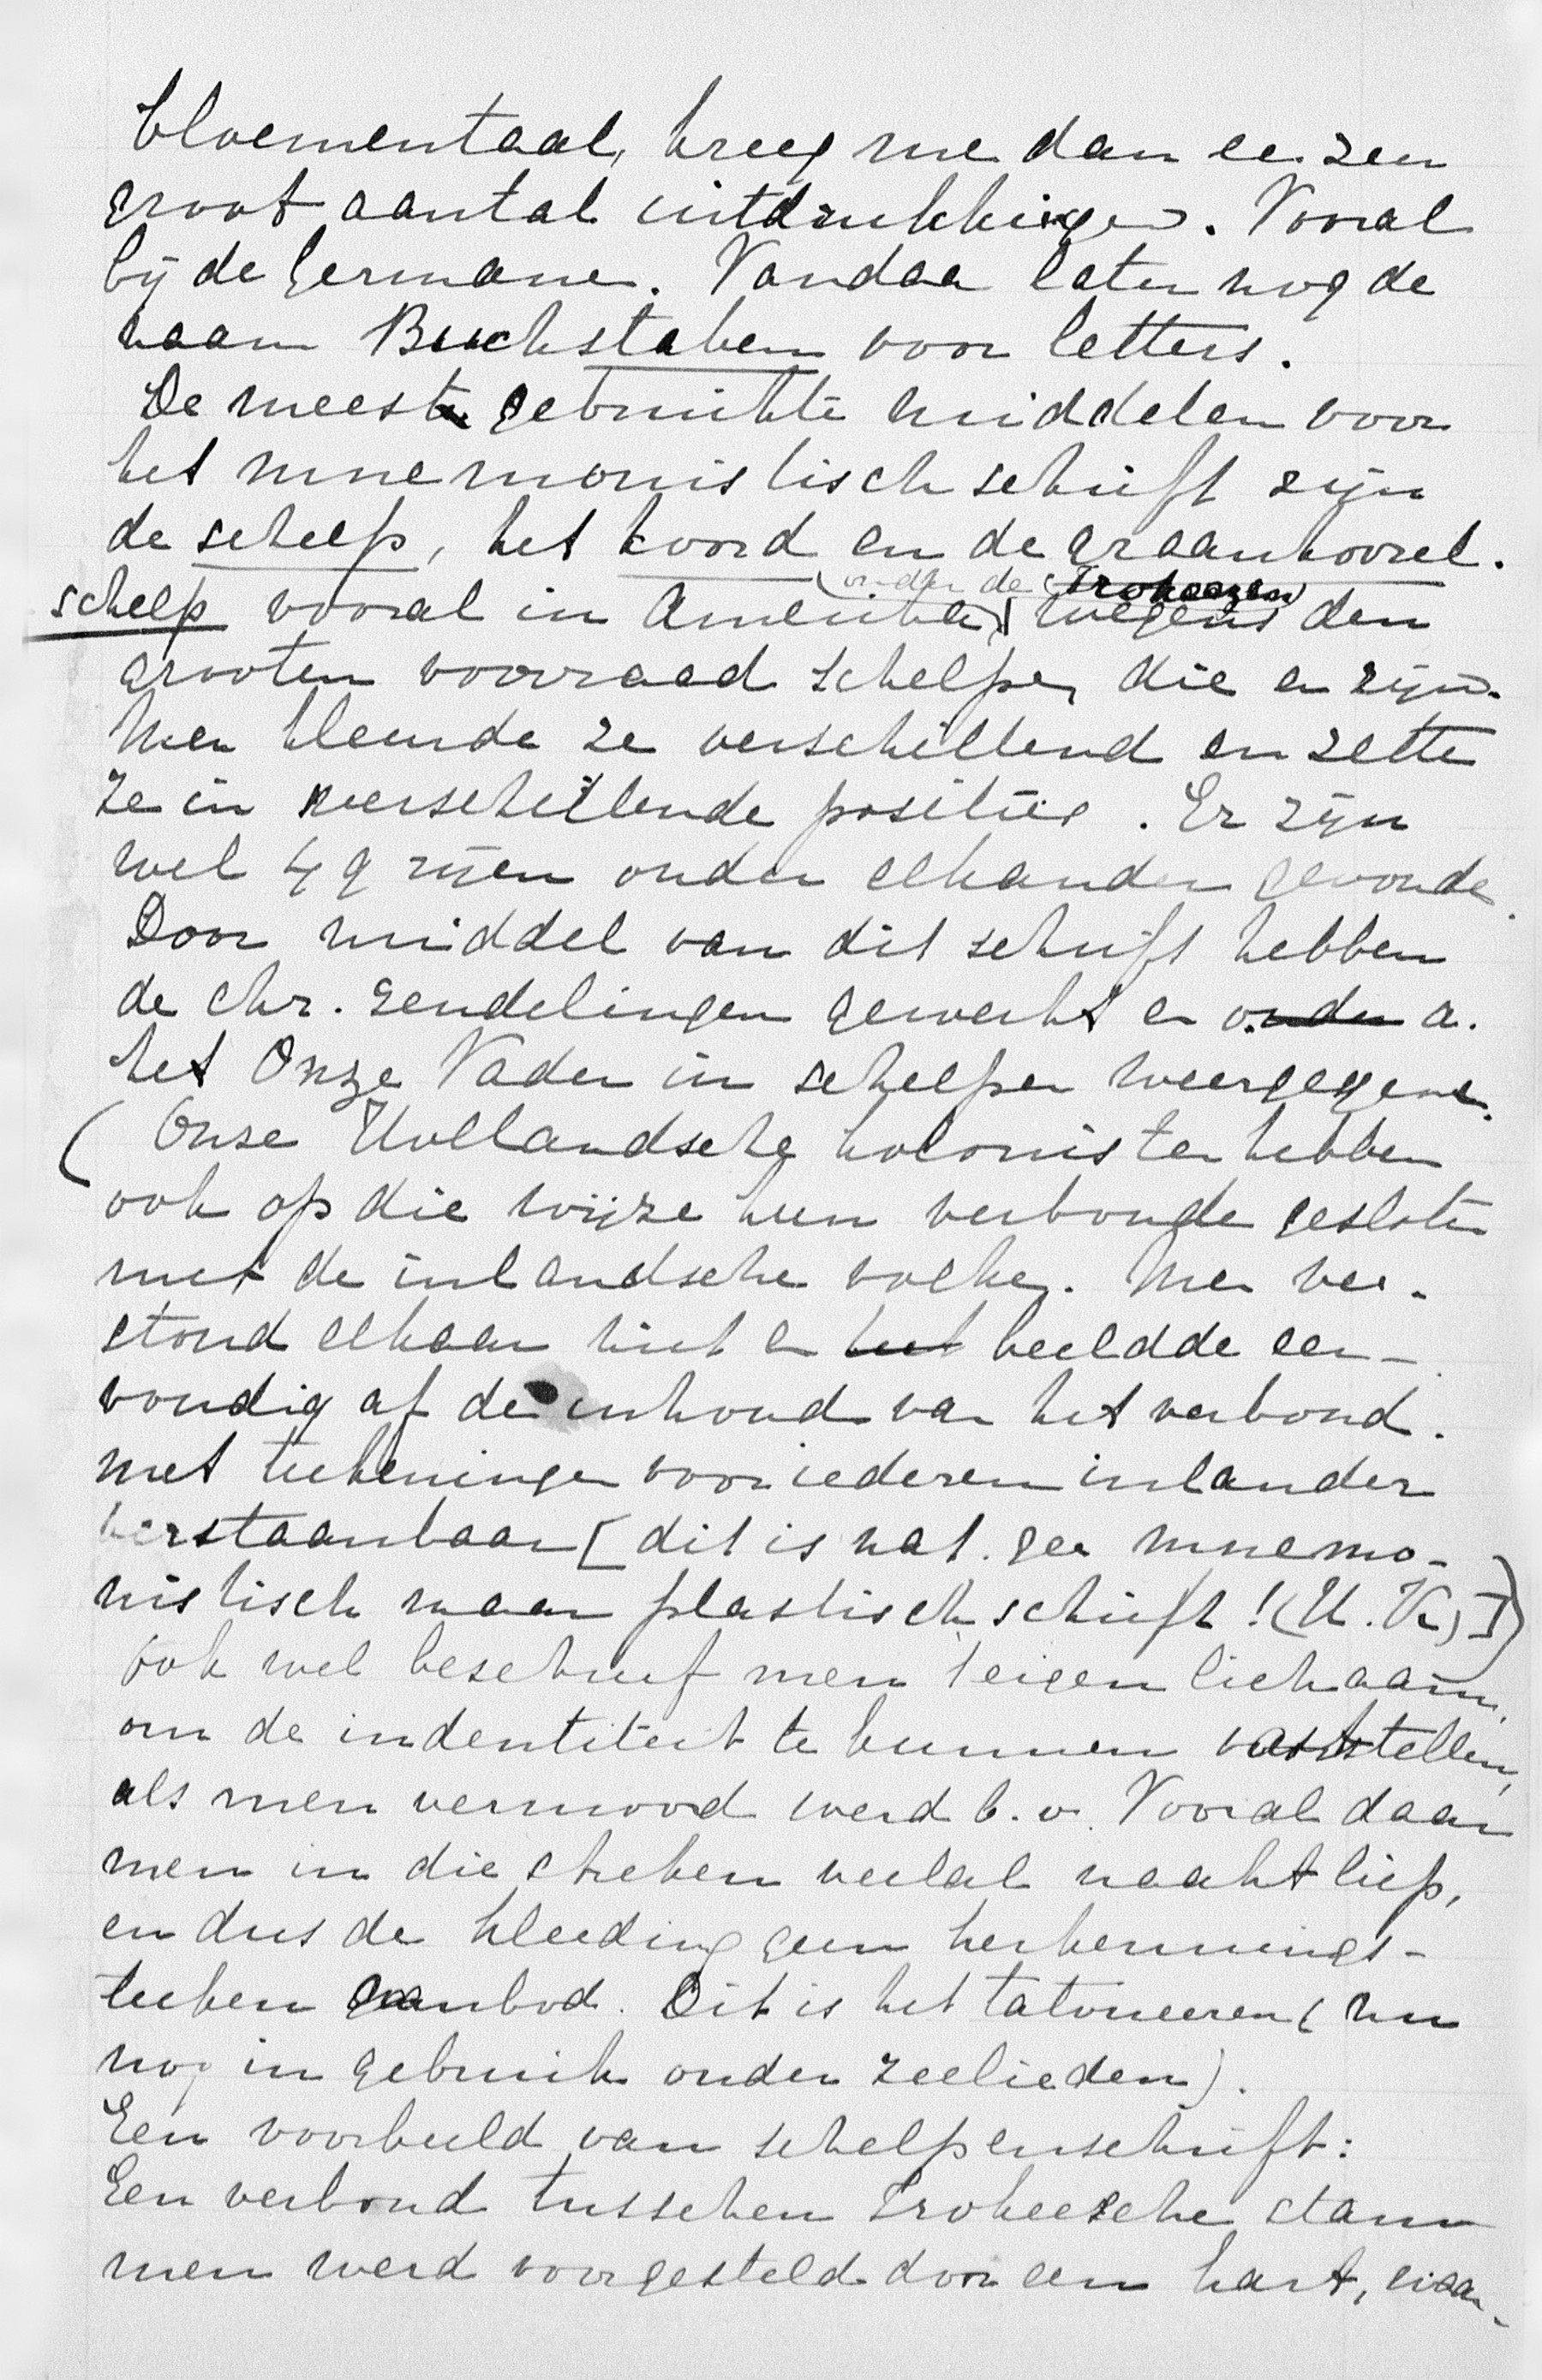 bloementaal, kreeg men dan een zeer
groot aantal uitdrukkingen. Vooral
bij de Germanen. Vandaar later nog de
naam Buchstaben voor letters.
De meest gebruikte middelen voor
het mnemonistisch schrift zijn
de schelp, het koord en de graankorrel.
(onder de Irokeezen)
schelp vooral in Amerika, wegens den
grooten voorraad schelpen die er zijn.
Men kleurde ze verschillend en zette
ze in verschillende posities. Er zijn
wel 49 rijen onder elkander gevonden.
Door middel van dit schrift hebben
de chr. zendelingen gewerkt en o. a.
het Onze Vader in schelpen weergegeven.
(Onze Hollandsche kolonisten hebben
ook op die wijze hun verbonden gesloten
met de inlandsche volken. Men ver-
stond elkaar niet en beeldde een-
voudig af de inhoud van het verbond.
met teekeningen voor iederen inlander
verstaanbaar [dit is nat. geen mnemo-
nistisch maar plastisch schrift! (H. K.)])
Ook wel beschreef men 't eigen lichaam,
om de indentiteit te kunnen vaststellen,
als men vermoord werd b.v. Vooral daar
men in die streken veelal naakt liep,
en dus de kleeding geen herkennings-
teeken aanbod. Dit is het tatoueeren (nu
nog in gebruik onder zeelieden).
Een voorbeeld van schelpenschrift:
Een verbond tusschen Irokeesche stam
men werd voorgesteld door een hart, waar-